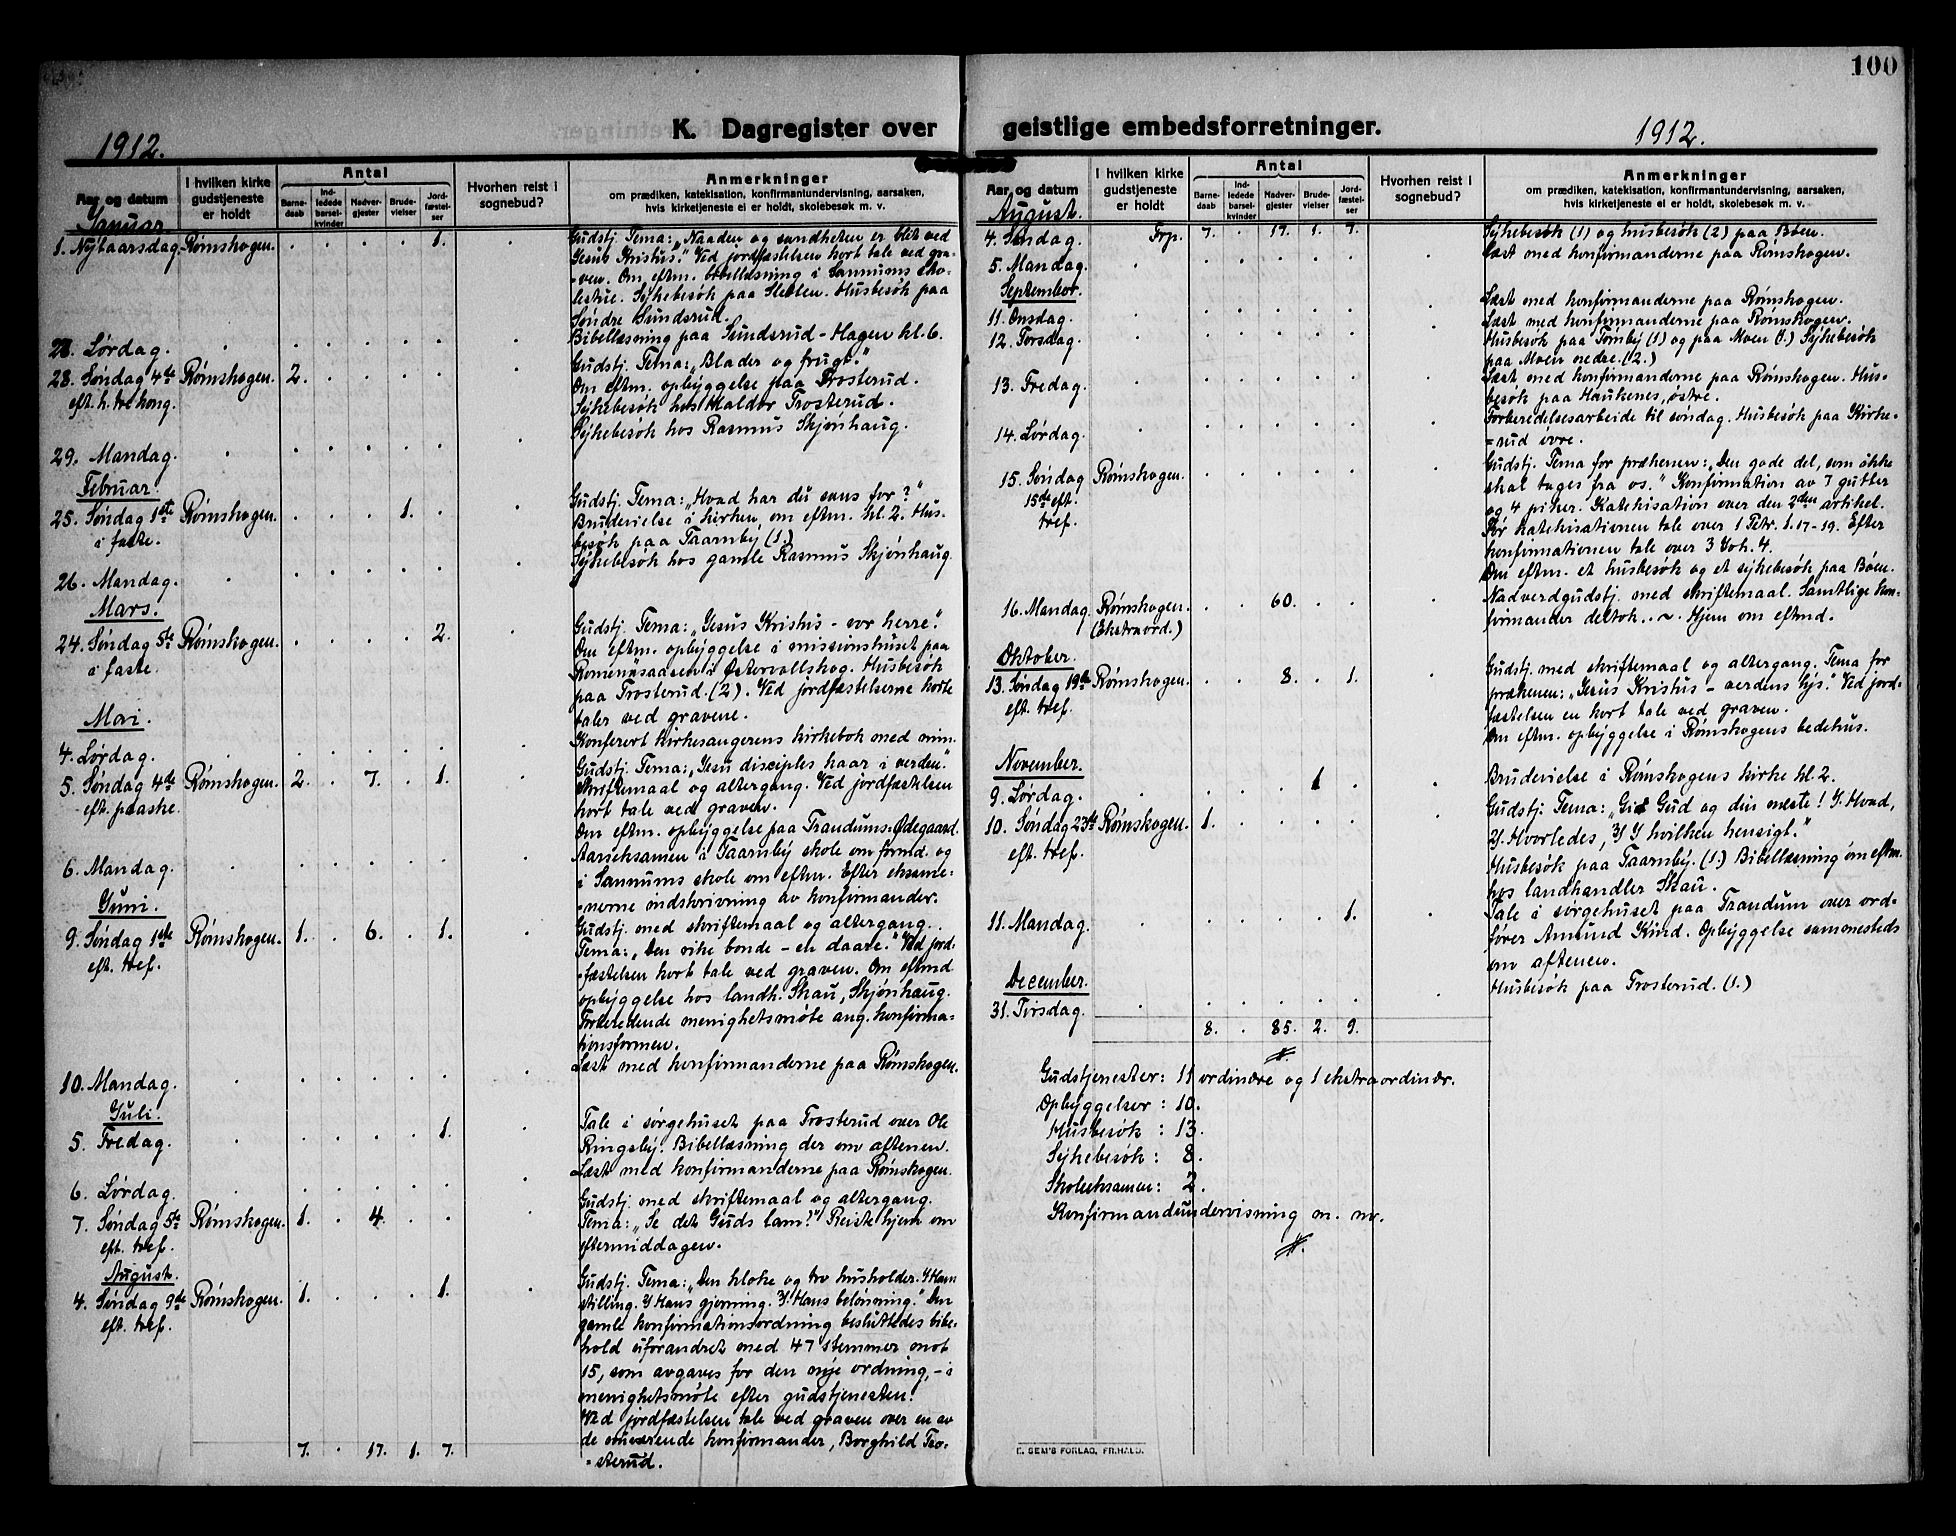 100
K. Dagregister over geistlige embedsforretninger.
1912.
1912.
Aar og datum
I hvilken kirke gudstjeneste er holdt
Antal
Barne-daab
Ind-ledede barsel-kvinder
Nadver-gjester
Brude-vielser
Jord-fæstel-ser
Hvorhen reist i sognebud?
Anmerkninger
om prædiken, katekisation, konfirmantundervisning, aarsaken,
hvis kirketjeneste ei er holdt, skolebesøk m. v.
Januar.
1. Nytaarsdag. Rømskogen. . . . . 1. . Gudstj. Tema: „Naaden og sandheten er blit ved
Jesus Kristus." Ved jordfæstelsen kort tale ved gra-
-ven. Om eftm. bibellæsning i Sannums sko-
lestue. Sykebesøk paa Sletten. Husbesøk paa
Søndre Sundsrud.
Lørdag. . . . . . . . Bibellæsning paa Sundsrud-Hagen kl. 6.
28. Søndag 4de Rømskogen. 2. . . . . . Gudstj. Tema: „Blader og frugt."
eft. h. tre kong. Om eftm. opbyggelse paa Trosterud.
Sykebesøk hos Haldor Trosterud.
29. Mandag. . . . . . . . Sykebesøk hos Rasmus Skjønhaug.
Februar.
25. Søndag 1ste Rømskogen. . . . 1. . . Gudstj. Tema: „Hvad har du sans for?"
i faste. Brudevielse i kirken, om eftm. kl. 2. Hus-
besøk paa Taarnby (1.)
26. Mandag. . . . . . . . Sykebesøk hos gamle Rasmus Skjønhaug.
Mars.
24. Søndag 5te Rømskogen. . . . . 2. . Gudstj. Tema: „Jesus Kristus - vor herre."
i faste. Om eftm. opbyggelse i missionshuset paa
i Østervallskog. Husbesøk
paa Trosterud. (2). Ved jordfæstelserne korte
taler ved gravene.
Mai.
4. Lørdag. . Konferert kirkesangerens kirkebok med min.
5. Søndag 4de Rømskogen. 2. . 7. . 1. . Gudstj. Tema: „Jesu disciples kaar i verden."
eft. paaske. Skriftemaal og altergang. Ved jordfæstelsen
kort tale ved graven.
Om eftm. opbyggelse paa Trandums-Ødegaard.
6. Mandag. . . . . . . . Aarseksamen i Taarnby skole om formd. og
i Sannums skole om eftm. Efter eksame-
-nerne indskrivning av konfirmander.
Juni.
9. Søndag 1ste Rømskogen. 1. . 6. . 1. . Gudstj. med skriftemaal og altergang.
eft. tref. Tema: „Den rike bonde - en daare." Ved jord-
-fæstelsen kort tale ved graven. Om eftmd
opbyggelse hos landh. Skau, Skjønhaug.
Forberedende menighetsmøte ang. konfirma-
tionsformen.
10. Mandag. . . . . . . . Læst med konfirmanderne paa Rømskogen.
Juli.
5. Fredag. . . . . . 1. . Tale i sørgehuset paa Trosterud over Ole
Ringsby. Bibellæsning der om aftenen.
6. Lørdag. . . . . . . . Læst med konfirmanderne paa Rømskogen.
7. Søndag 5te Rømskogen. 1. . 4. . . . Gudstj. med skriftemaal og altergang.
eft. tref. Tema: „Se det Guds lam!" Reiste hjem om
eftermiddagen.
August.
4. Søndag 9de Rømskogen. 1. . . . 1. . Gudstj. Tema: „Den kloke og tro husholder. 1/ Hans
eft. tref. stilling. 2/ Hans gjerning. 3/ Hans belønning." Den
gamle konfirmationsordning besluttedes bibe-
hold uforandret med 47 stemmer mot
15, som avgaves for den nye ordning, - i
menighetsmøte efter gudstjenesten.
Ved jordfæstelsen tale ved graven over en av
de nuværende konfirmander, Borghild Tro-
-sterud.
7. . 17. 1. 7.
Aar og datum
I hvilken kirke gudstjeneste er holdt
Antal
Barne-daab
Ind-ledede barsel-kvinder
Nadver-gjester
Brude-vielser
Jord-fæstel-ser
Hvorhen reist i sognebud?
Anmerkninger
om prædiken, katekisation, konfirmantundervisning, aarsaken,
hvis kirketjeneste ei er holdt, skolebesøk m. v.
August.
4. Søndag. Frp. 7. . 17. 1. 7. Sykebesøk (1) og husbesøk (2) paa Bøen.
5. Mandag. . . . . . . . Læst med konfirmanderne paa Rømskogen.
September.
11. Onsdag. . . . . . . . Læst med konfirmanderne paa Rømskogen.
12. Torsdag. . . . . . . . Læst med konfirmanderne paa Rømskogen.
Husbesøk paa Tørnby (1) og paa Moen (1.) Sykebesøk
paa Moen nedre. (2.)
13. Fredag. . . . . . . . Læst med konfirmanderne paa Rømskogen. Hus-
besøk paa Haukenes, østre.
14. Lørdag. . . . . . . . Forberedelsesarbeide til søndag. Husbesøk paa Kirke-
=rud øvre.
15. Søndag Rømskogen. . . . . . . Gudstj. Tema for prækenen: „Den gode del, som ikke
15de eft. skal tages fra os." Konfirmation av 7 gutter
tref. og 4 piker. Katekisation over den 2den artikel.
Før katekisationen tale over 1 Petr. 1. 17-19. Efter
konfirmationen tale over 3 Joh. 4.
Om eftm. et husbesøk og et sykebesøk paa Bøen.
16. Mandag. Rømskogen. . . 60. . . . Nadverdgudstj. med skriftemaal. Samtlige kon-
(Ekstraord.) firmander deltok. . ~ . Hjem om eftmd.
Oktober.
13. Søndag 19de Rømskogen. . . 8. . 1. . Gudstj. med skriftemaal og altergang. Tema for
eft. tref. prækenen: „Jesus Kristus - verdens lys." Ved jord-
fæstelsen en kort tale ved graven.
Om eftm. opbyggelse i Rømskogens bedehus.
November.
9. Lørdag. . . . . 1 . . Brudevielse i Rømskogens kirke kl. 2.
10. Søndag 23de Rømskogen. 1. . . . . . Gudstj. Tema: „Gi Gud og din næste! 1/ Hvad,
eft. tref. 2/ Hvorledes, 3/ I hvilken hensigt."
Husbesøk paa Taarnby. (1.) Bibellæsning om eftm.
hos landhandler Skau.
11. Mandag. . . . . . 1. . Tale i sørgehuset paa Trandum over ord-
fører Amund Kind. Opbyggelse sammesteds
om aftenen.
December.
31. Tirsdag. . . . . . . . Husbesøk paa Trosterud. (1.)
8. . 85. 2. 9.
Gudstjenester: 11 ordinære og 1 ekstraordinær.
Opbyggelser : 10.
Husbesøk : 13.
Sykebesøk : 8.
Skoleeksamen: 2.
Konfirmandundervisning m. m.
E. SEM'S FORLAG, FR.HALD.